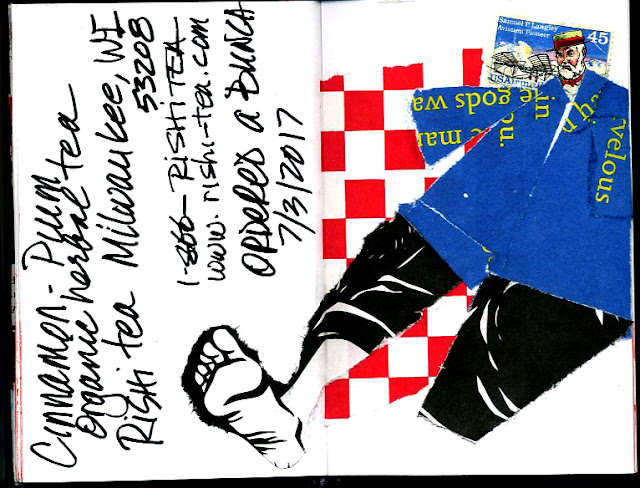 Cinnamon-Plum
organic herbal tea
Rishi tea Milwaukee, WI
53208
1-866-RISHITEA
www.rishi-tea.com
ORDERED A BUNCH
7/3/2017
Samuel P. Langley
Aviation Pioneer
45
USAirmail
e gods wa
e mar
ou.
in
velous